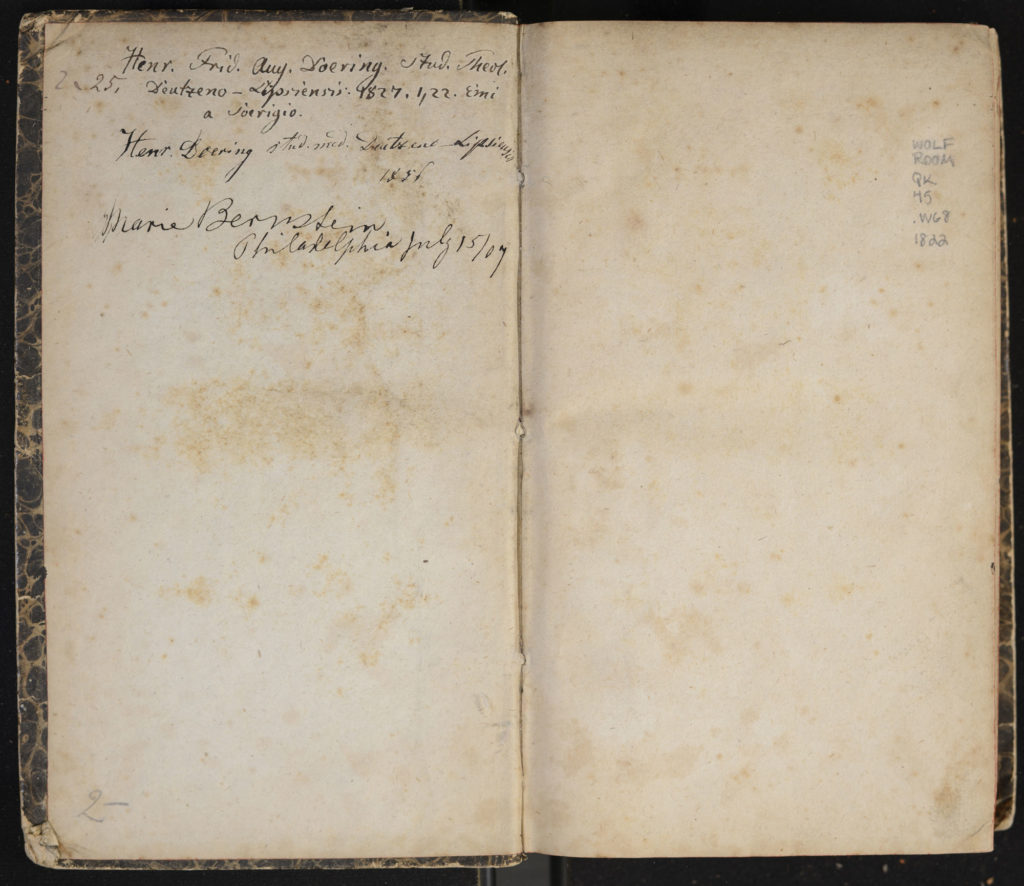 Henr. Frid. Aug. Doering. Stud. Theol.
25. Deutzeno - Lipsiensis. 1827. 1,22. Emi
a
Henr. Doering stud. med. Deutzeno - Lipsiensis
1856
Marie Bernstein
Philadelphia July 15/07
2-
WOLF
ROOM
QK
45
.W68
1822